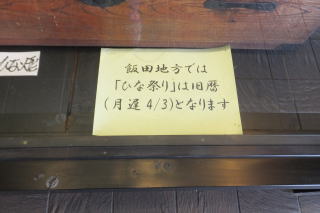 飯田地方では
「ひな祭り」は旧暦
(月遅4/3)となります